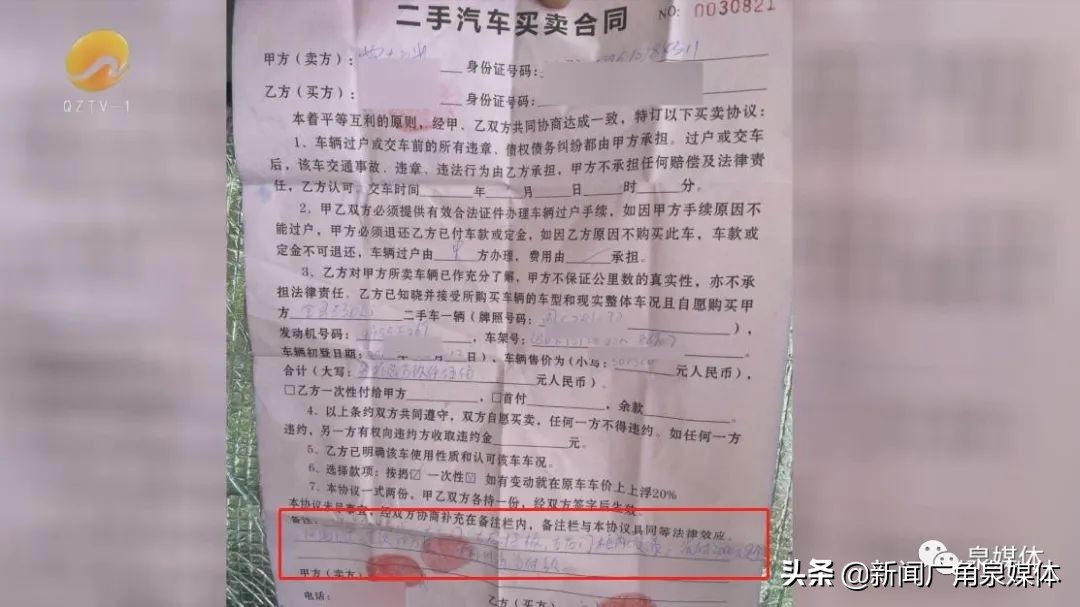 二手汽车买卖合同
NO: 0030821
QZTV-1
甲方（卖方）： 身份证号码：
乙方（买方）： 身份证号码：
本着平等互利的原则，经甲、乙双方共同协商达成一致，特订以下买卖协议：
1、车辆过户或交车前的所有违章、债权债务纠纷都由甲方承担。过户或交车
后，该车交通事故、违章、违法行为由乙方承担，甲方不承担任何赔偿及法律责
任，乙方认可，交车时间 年 月 日 时 分。
2、甲乙双方必须提供有效合法证件办理车辆过户手续，如因甲方手续原因不
能过户，甲方必须退还乙方已付车款或定金，如因乙方原因不购买此车，车款或
定金不可退还，车辆过户由 甲 方办理，费用由 承担。
3、乙方对甲方所卖车辆已作充分了解，甲方不保证公里数的真实性，亦不承
担法律责任。乙方已知晓并接受所购买车辆的车型和现实整体车况且自愿购买甲
方 二手车一辆（牌照号码： ），
发动机号码： ，车架号： 。
车辆初登日期： 年 日），车辆售价为（小写： 元人民币），
合计（大写： 元人民币）。
□乙方一次性付给甲方 ，□首付 ，余款 。
4、以上条约双方共同遵守，双方自愿买卖，任何一方不得违约。如任何一方
违约，另一方有权向违约方收取违约金 元。
5、乙方已明确该车使用性质和认可该车车况。
6、选择款项：按揭☑ 一次性☐ 如有变动就在原车车价上上浮20%
7、本协议一式两份，甲乙双方各持一份，经双方签字后生效。
本协议未尽事宜，经双方协商补充在备注栏内，备注栏与本协议具同等法律效应。
备注：
甲方（卖方）：
电话：
乙方（买方）：
泉媒体
头条 @新闻广角泉媒体